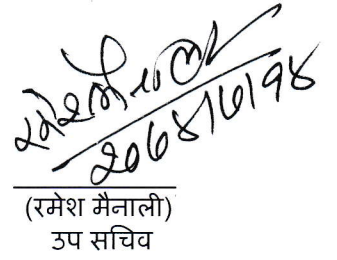 रमेश मैनाली
२०७४।७।१४
(रमेश मैनाली)
उप सचिव